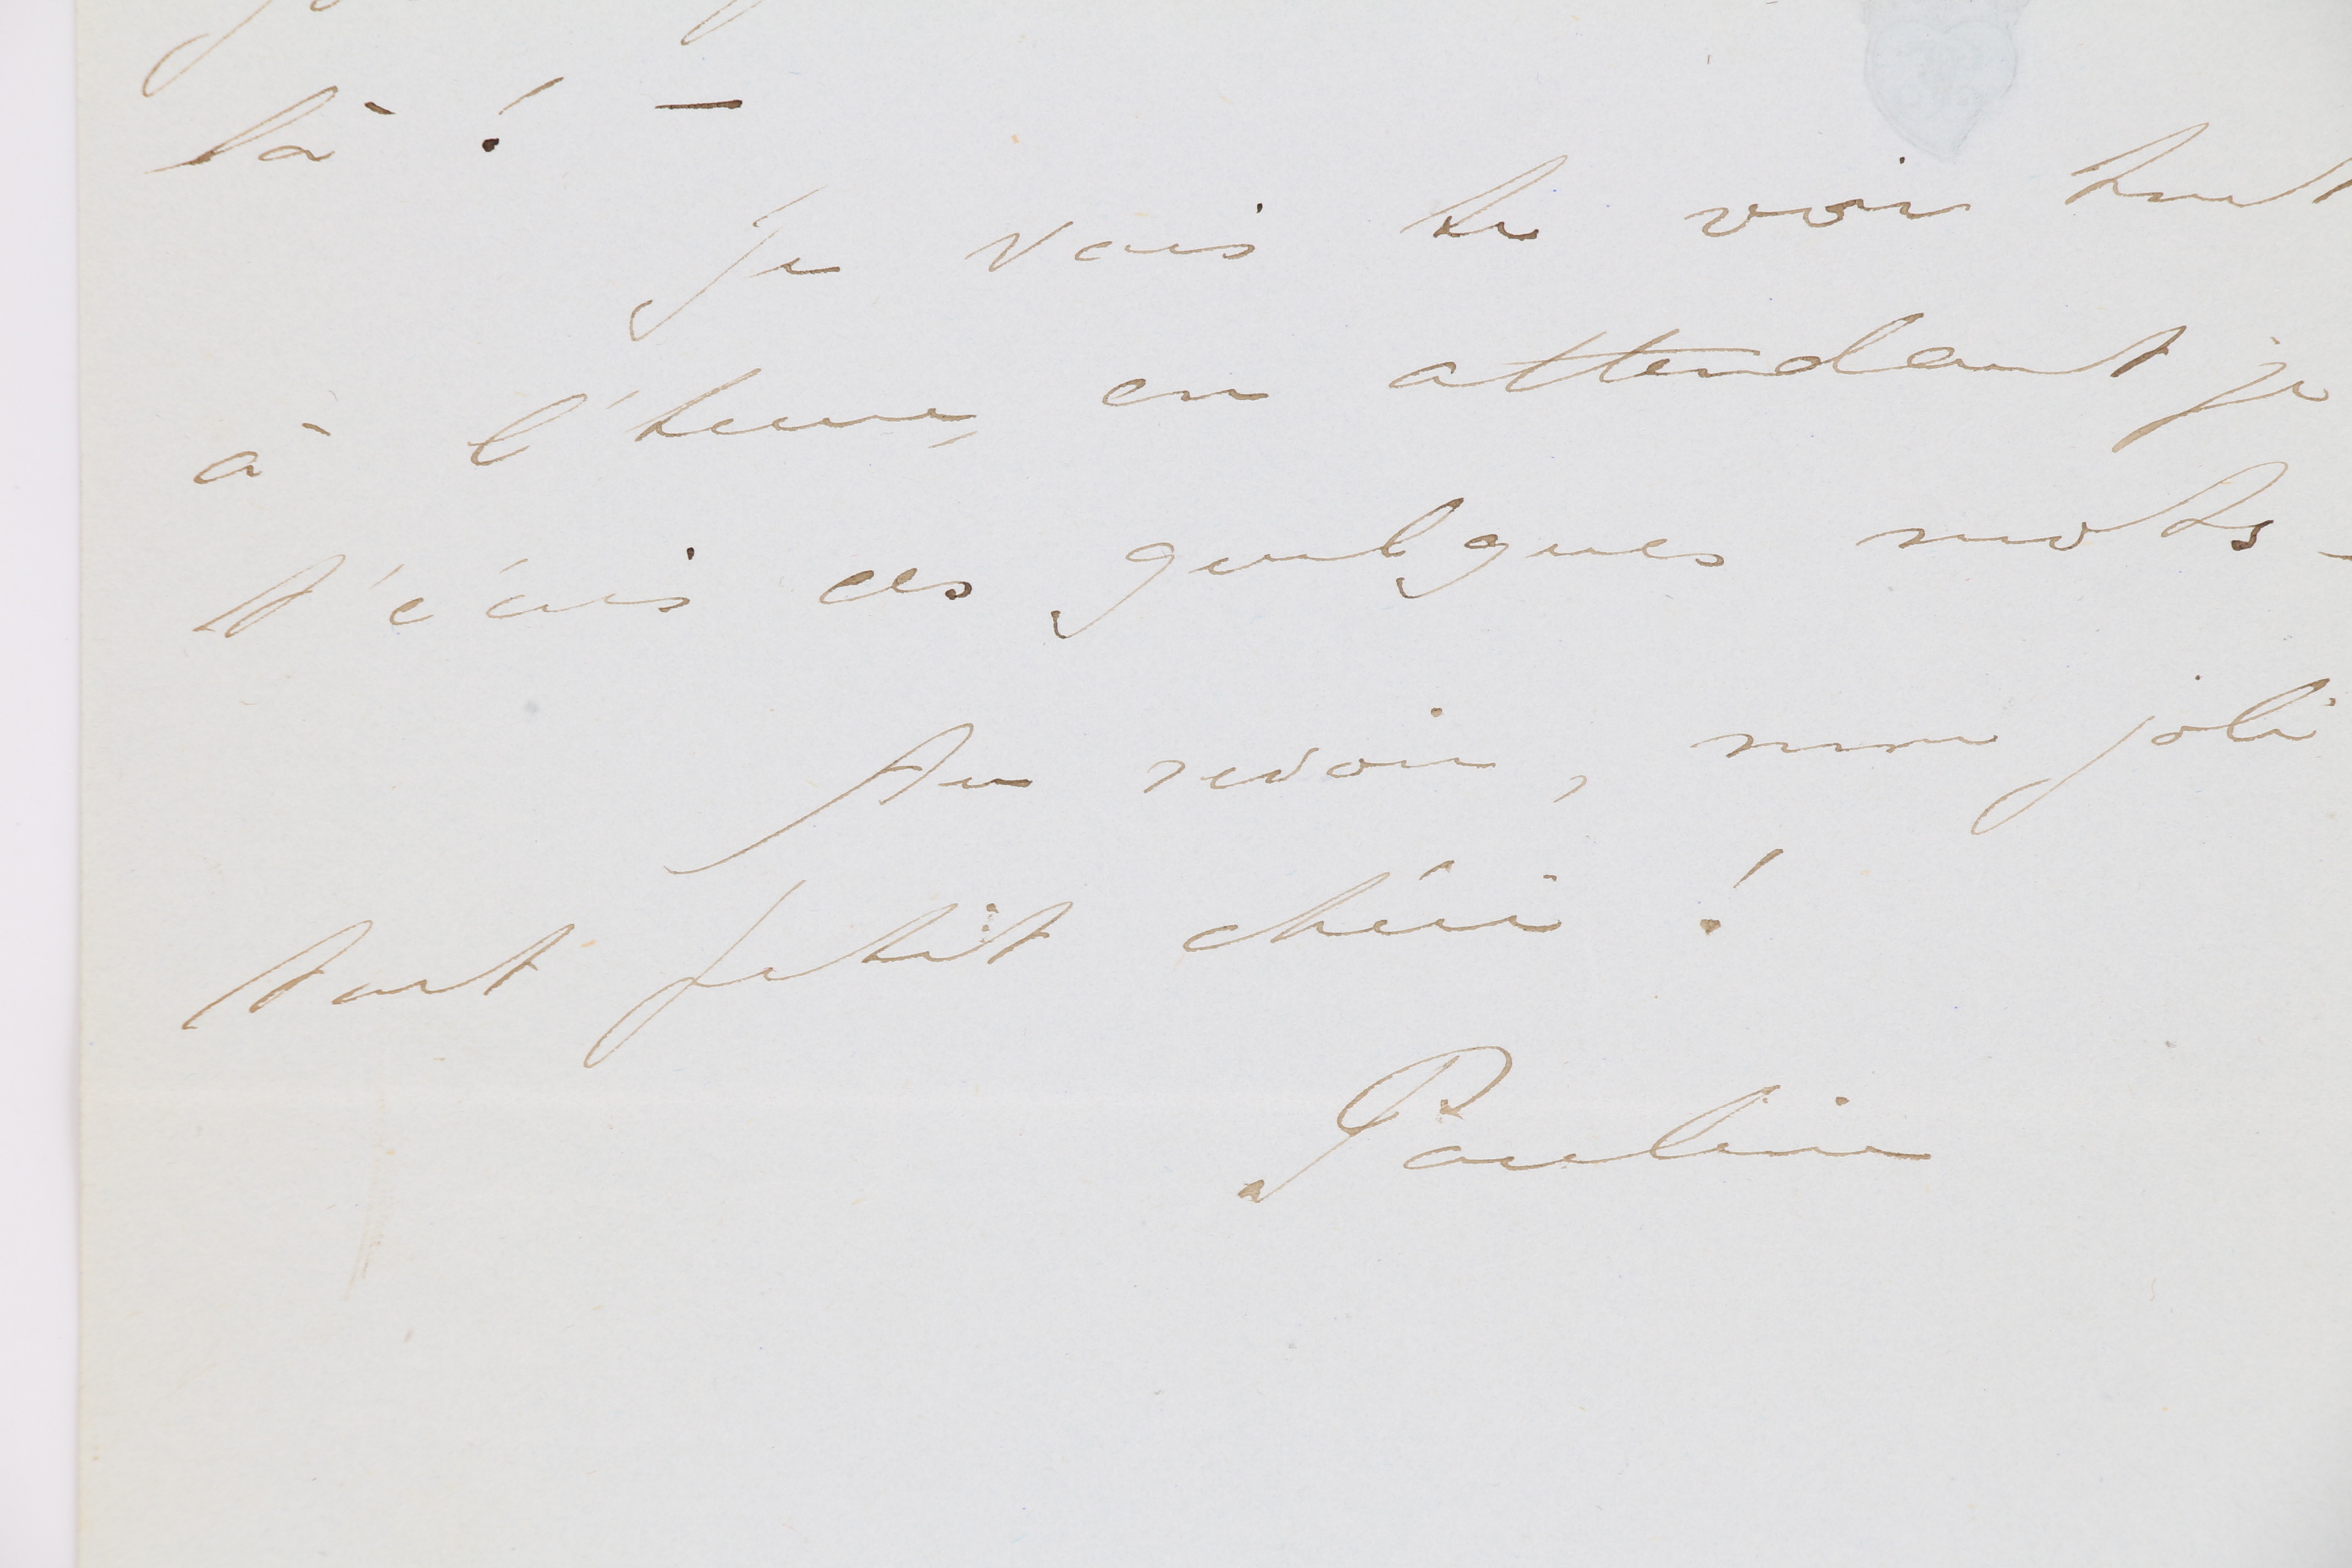 là ! —
Je vais te voir tout
à l'heure, en attendant je
t'écris ces quelques mots -
Au revoir, mon joli
tout petit chéri !
Pauline